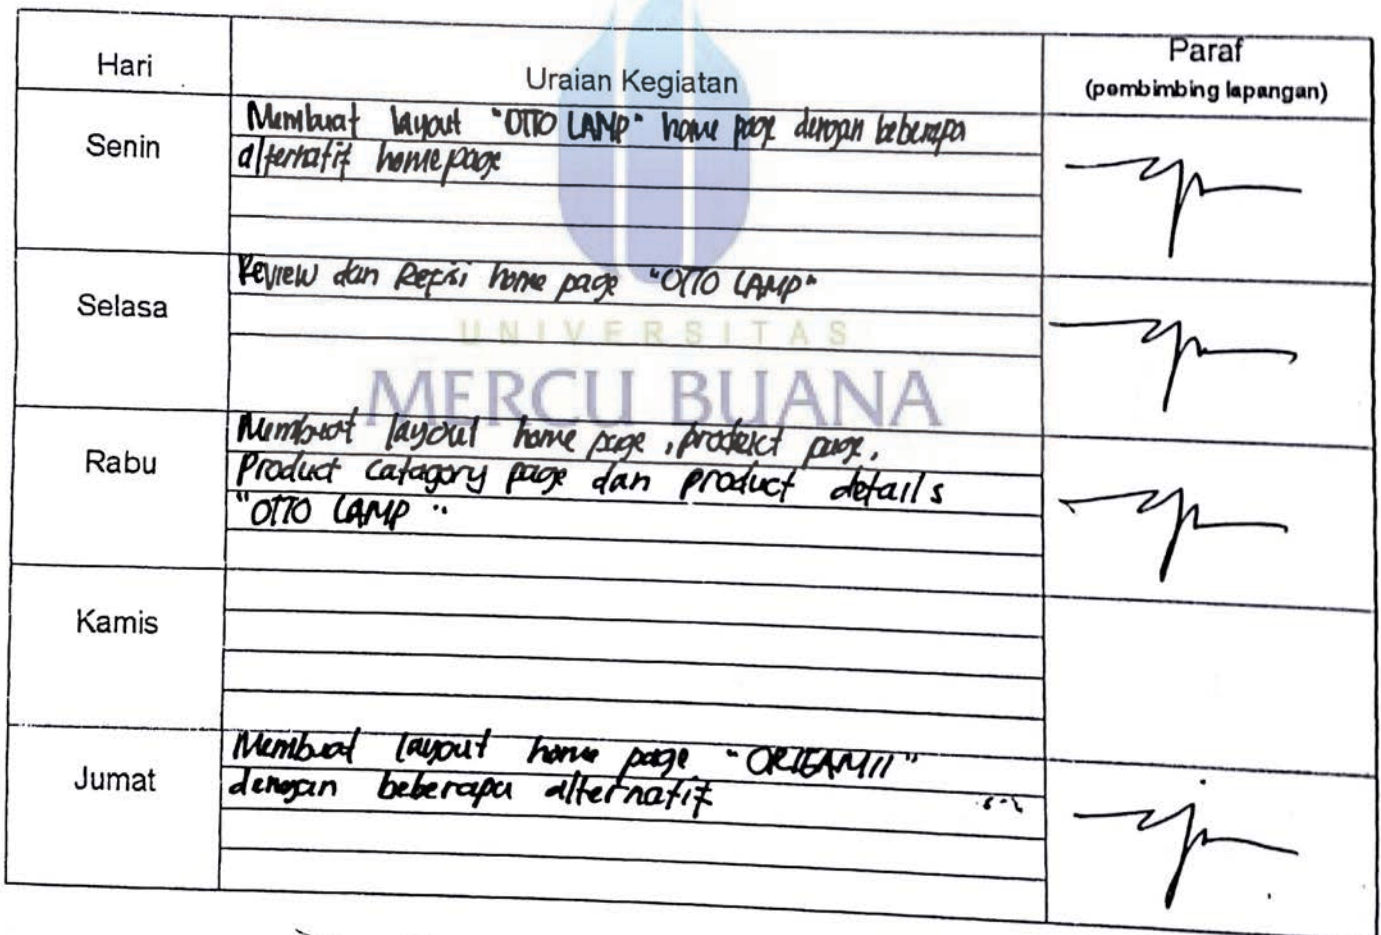 Hari
Uraian Kegiatan
Paraf
(pembimbing lapangan)
Senin
Membuat layout "OTTO LAMP" home page dengan beberapa
alternatif homepage
Selasa
Review dan Refisi home page "OTTO LAMP"
UNIVERSITAS
MERCU BUANA
Rabu
Membuat layout home page, product page,
Product catagory page dan product details
"OTTO LAMP"
Kamis
Jumat
Membuat layout home page "ORIGAMII"
dengan beberapa alternatif